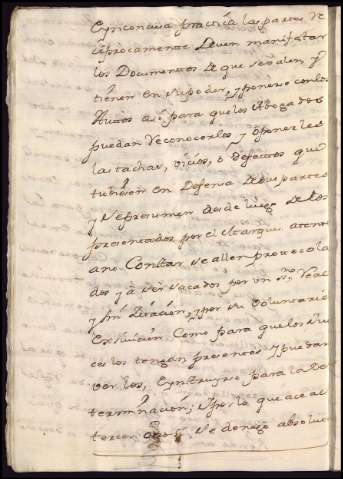 Es inconcusa practica las partes re
ciprocamente deven manifestar
los Documentos de que se valen, y
tienen en su poder, y ponerse con los
Autos a, para que los Abogados
puedan reconocerlos y oponerles
las tachas, vicios, o defectos que
tubieren en defensa de sus partes
y se presumen desde luego de los
presentados por el Marques atento
a no Constar se allen protocola
dos y a ser sacados por un
y sin Citacion, y por su voluntario
Exsivicion, Como para que los
cos los tengan presentes y puedan
ver los, e ynstruyrse para la De
terminacion; y por lo que ace al
tercero se denego absolu